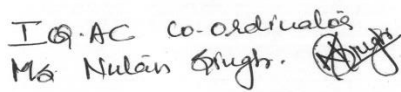 IQ.AC Co-ordinator
Ms Nutan Singh.